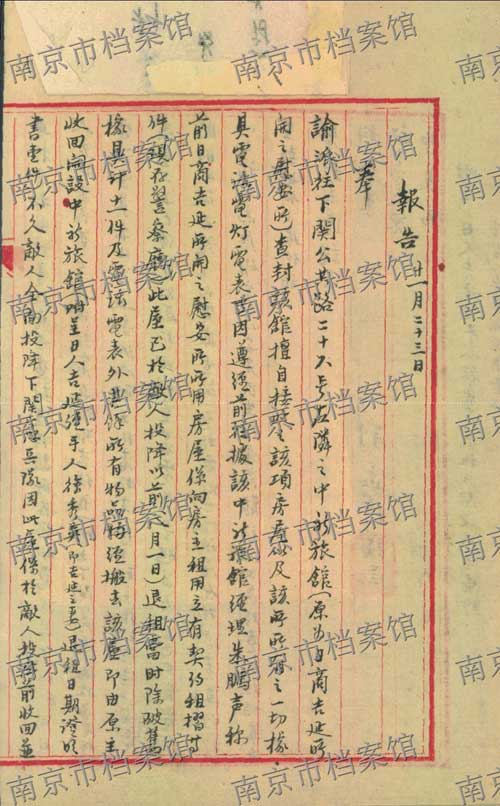 報告 十一月二十三日
奉
諭派往下關公共路二十六號左隣之中新旅館(原為日商吉延所
開之慰安所)查封該館擅自接收該項房屋及該所所有之一切傢
具電話電灯電表等因遵經前往據該中新旅館經理朱鵬声称
前日商吉延所開之慰安所所用房屋係向房主租用立有契約租摺等
件現在警察廳此屋已於敵人投降以前(八月一日)退租當時除破舊
傢具計十一件及電話電表外其餘所有物品均經搬去該屋即由原主
收回開設中新旅館附呈日人吉延經手人徐秀英即吉延之妻退租日期證明
書壹件不久敵人全面投降下關憲兵隊因此屋係於敵人投降前收回並
南京市档案馆